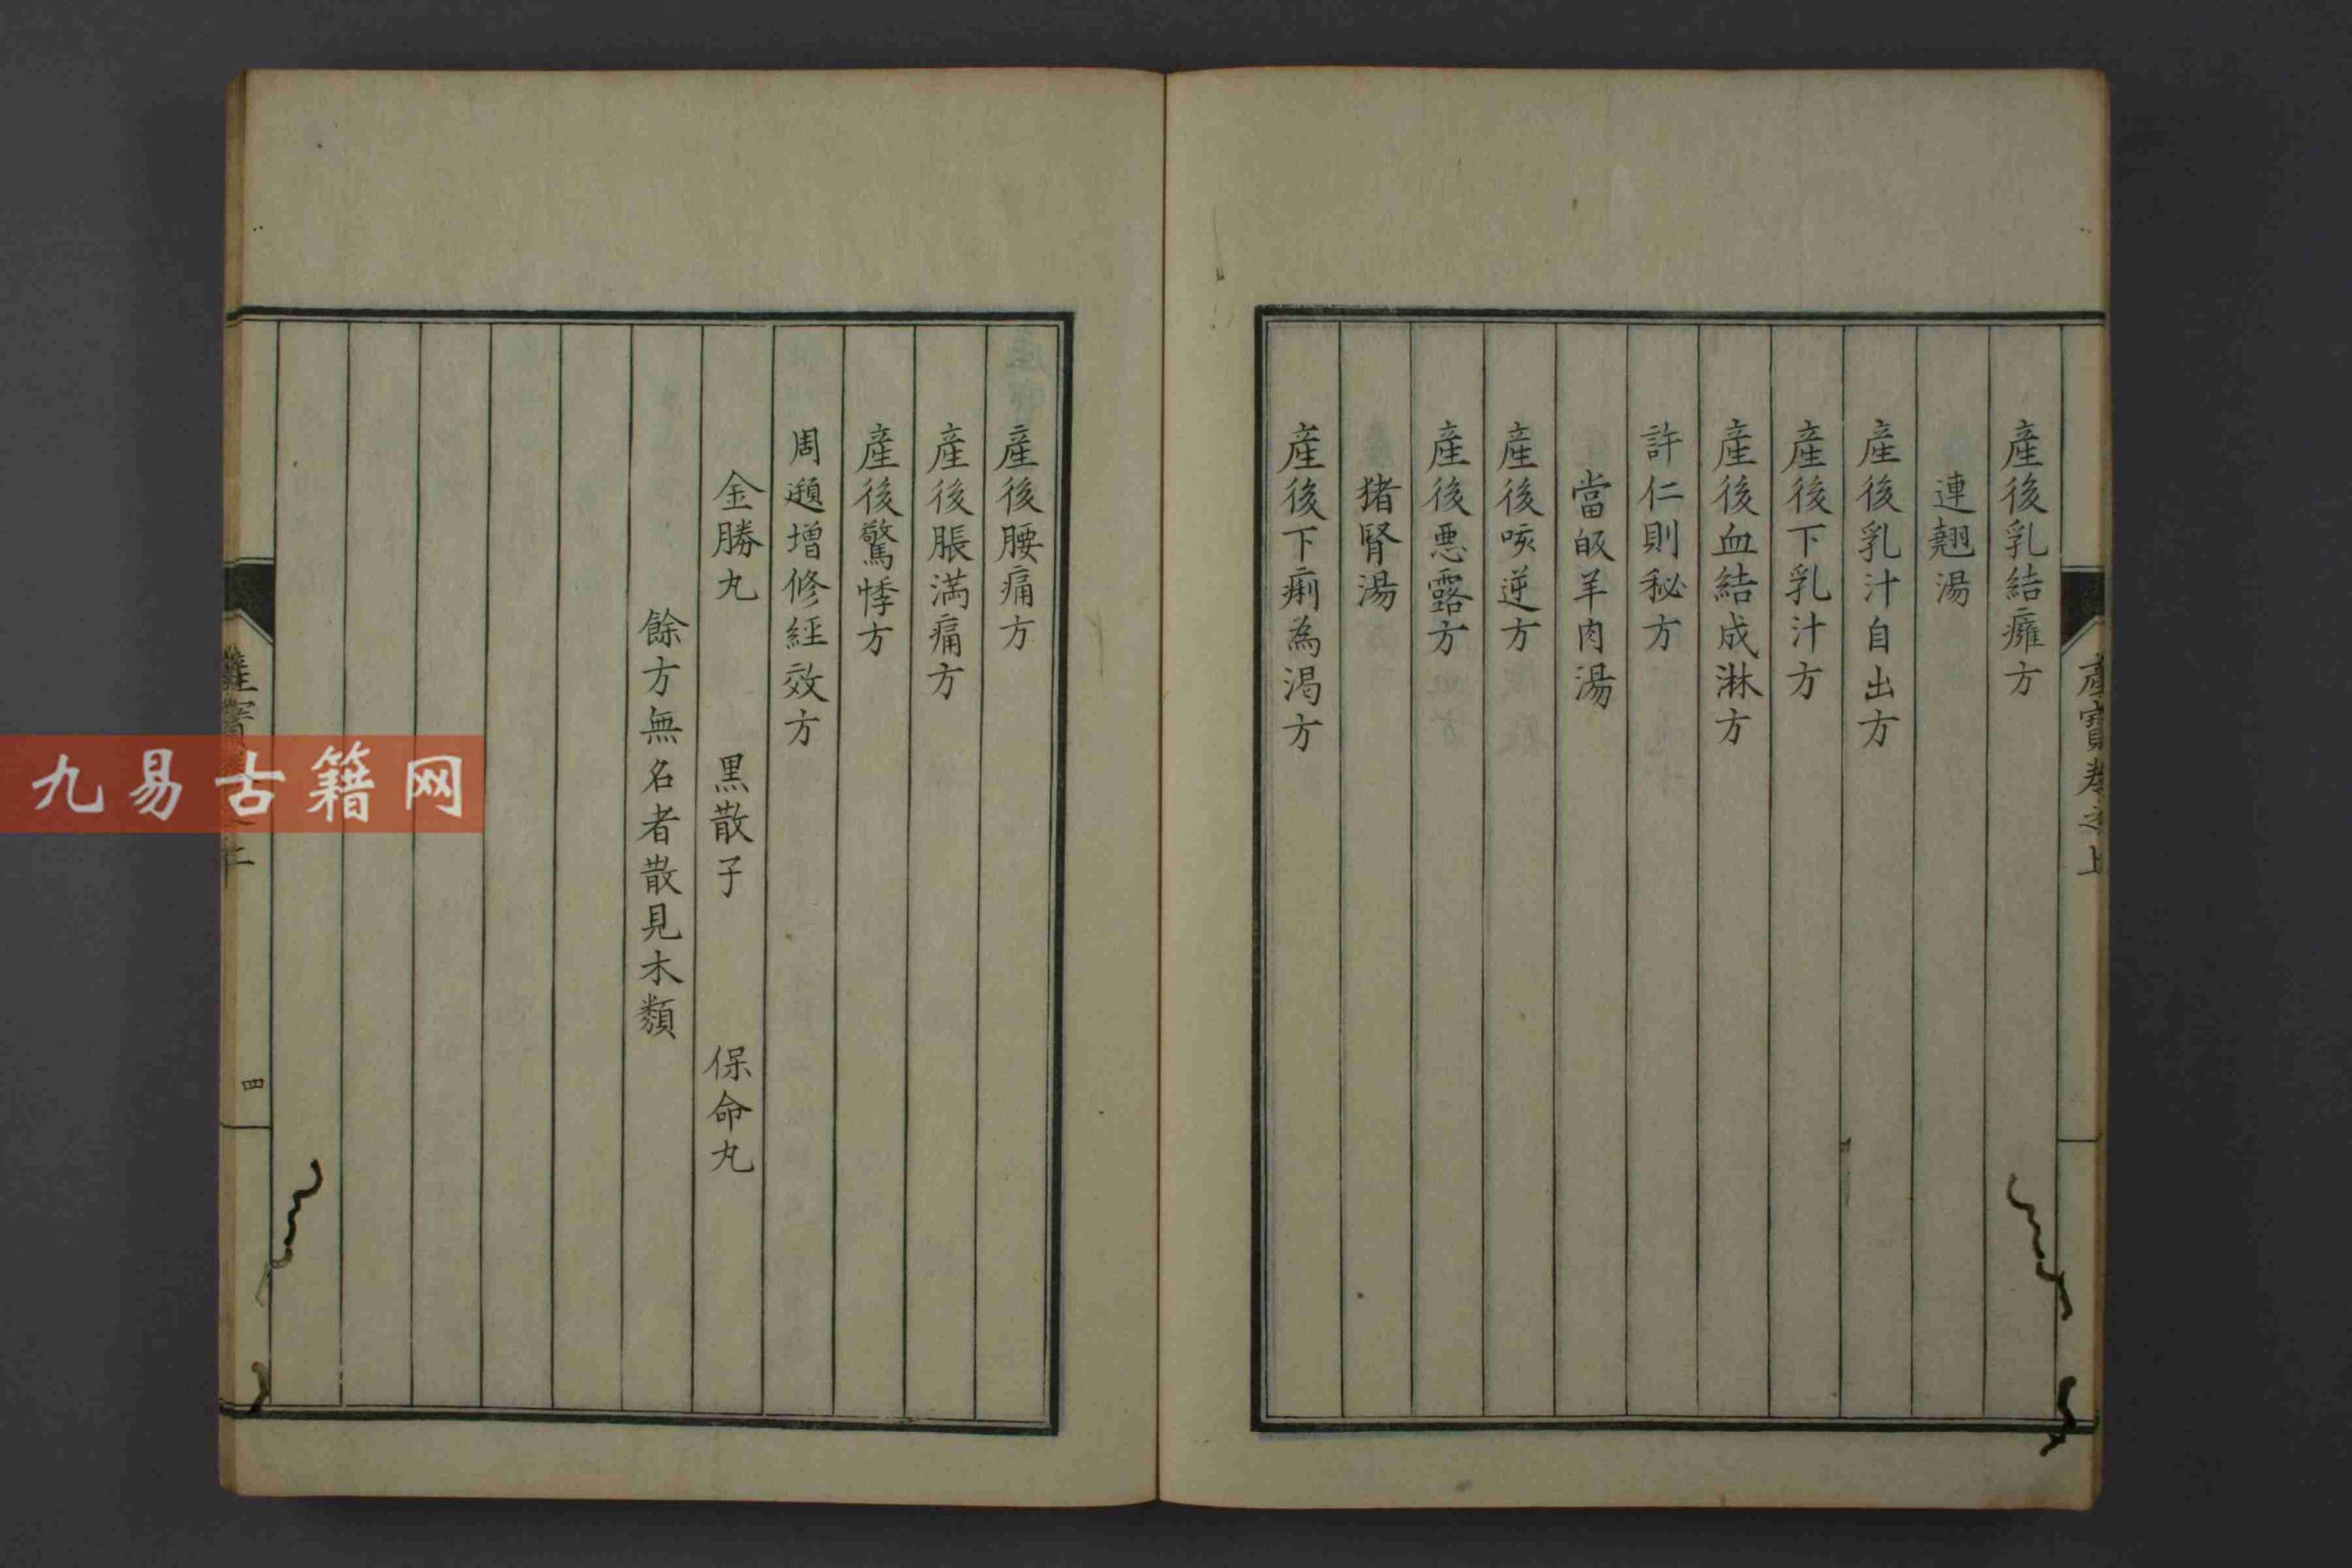 產後乳結癰方
連翹湯
產後乳汁自出方
產後下乳汁方
產後血結成淋方
許仁則秘方
當皈羊肉湯
產後咳逆方
產後惡露方
猪腎湯
產後下痢為渴方
產寶卷之上
產後腰痛方
產後脹滿痛方
產後驚悸方
周遞增修經效方
金勝丸 黑散子 保命丸
餘方無名者散見本類
四
九易古籍网